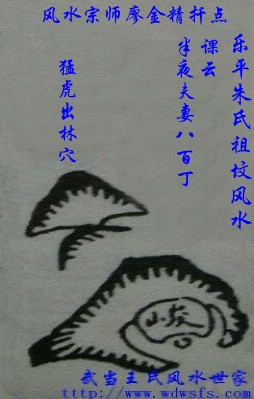 风水宗师廖金精扦点
乐平朱氏祖坟风水
课云
半夜夫妻八百丁
猛虎出林穴
武当王氏风水世家
http://www.wdwsfs.com